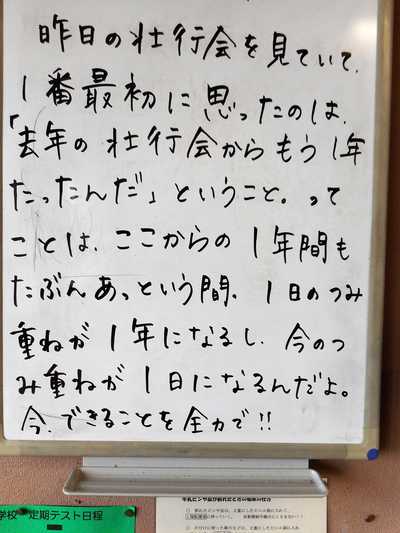 昨日の壮行会を見ていて、
1番最初に思ったのは、
「去年の壮行会からもう1年
たったんだ」ということ。って
ことは、ここからの1年間も
たぶんあっという間、1日のつみ
重ねが1年になるし、今のつ
み重ねが1日になるんだよ。
今、できることを全力で!!
学校 定期テスト日程